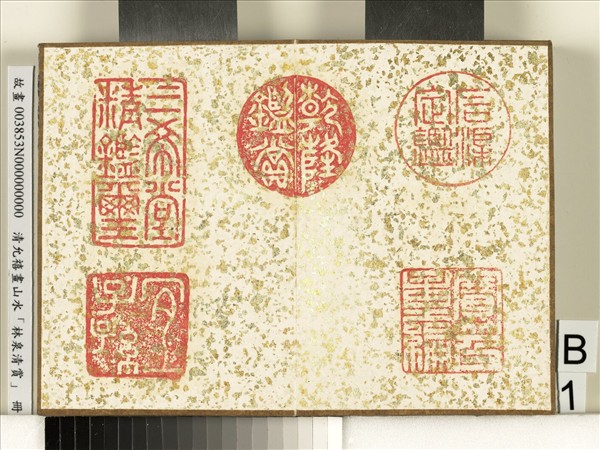 石渠定鑑
寶笈重編
乾隆鑑賞
三希堂精鑑璽
宜子孫
故畫 003853N000000000 清允禧畫山水「林泉清賞」 冊
B
1